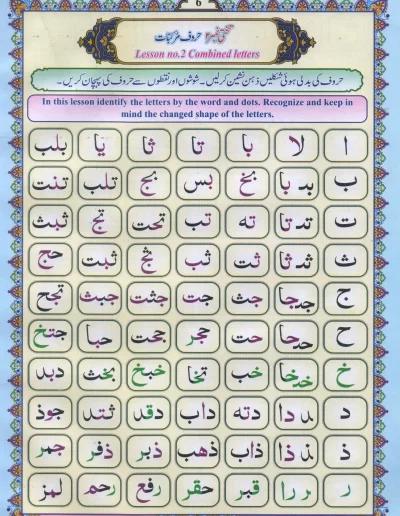 6
تختی نمبر۲ حروف مرکبات
Lesson no.2 Combined letters
حروف کی بدلی ہوئی شکلیں ذہن نشین کرلیں۔ شوشوں اور نقطوں سے حروف کی پہچان کریں۔
In this lesson identify the letters by the word and dots. Recognize and keep in
mind the changed shape of the letters.
ا لا با تا ثا یا بلب
ب بد با بخ بس بج تلب تنت
ت تد تا ته تب تحت تج ثبث
ث ثد ثا ثت ثب ثج ثبت حج
ج جد جا جث جت جثت جبث تجح
ح حد حا حت حجر حجت حبا جتخ
خ خد خا خب تخا خبخ بخث دبد
د د دا دته داب دقد ثتد جوذ
ذ ذ ذا ذاب ذهب ذبر ذفر جمر
ر ر را قبر حقر رفع رحم لمز